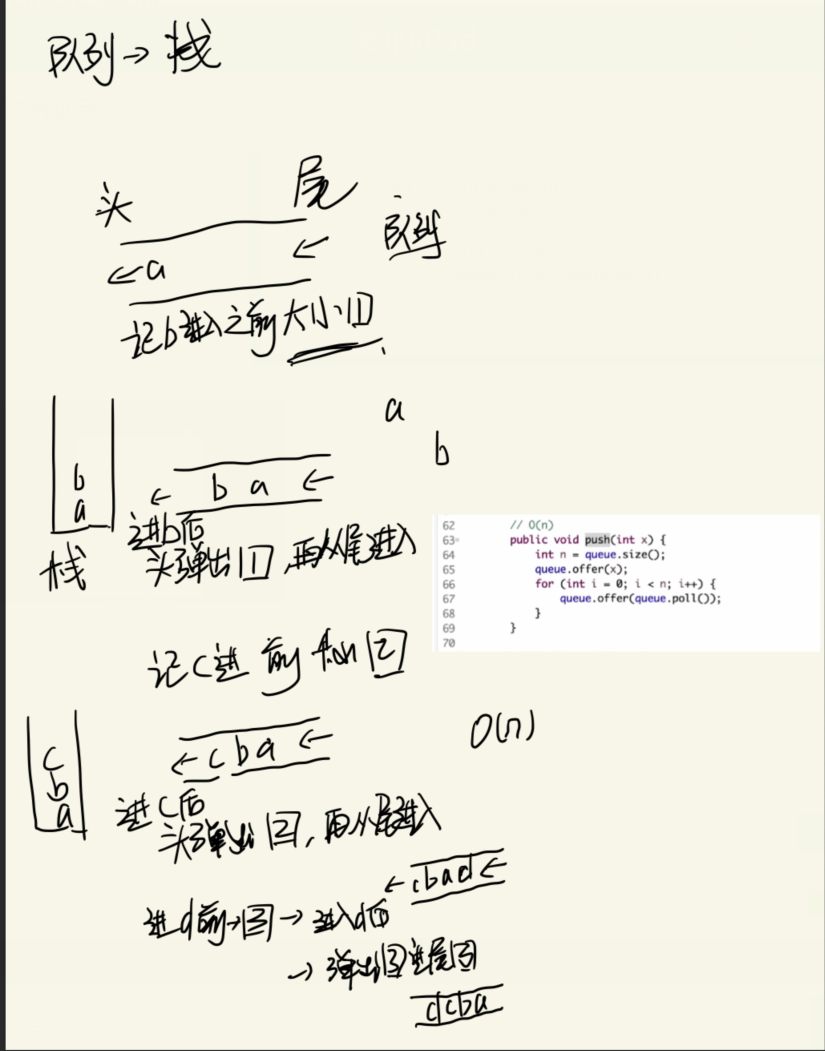 队列→栈
头 尾
队列
←a ←
记b进入之前大小1
a
b
b
a
← b a ←
进b后
栈
头弹出1，再从尾进入
62 // O(n)
63 public void push(int x) {
64 int n = queue.size();
65 queue.offer(x);
66 for (int i = 0; i < n; i++) {
67 queue.offer(queue.poll());
68 }
69 }
70
记c进前 2
c
b
a
← c b a ←
O(n)
进c后
头弹出2，再从尾进入
← c b a d ←
进d前→3→进入d后
→弹出3进尾3
d c b a